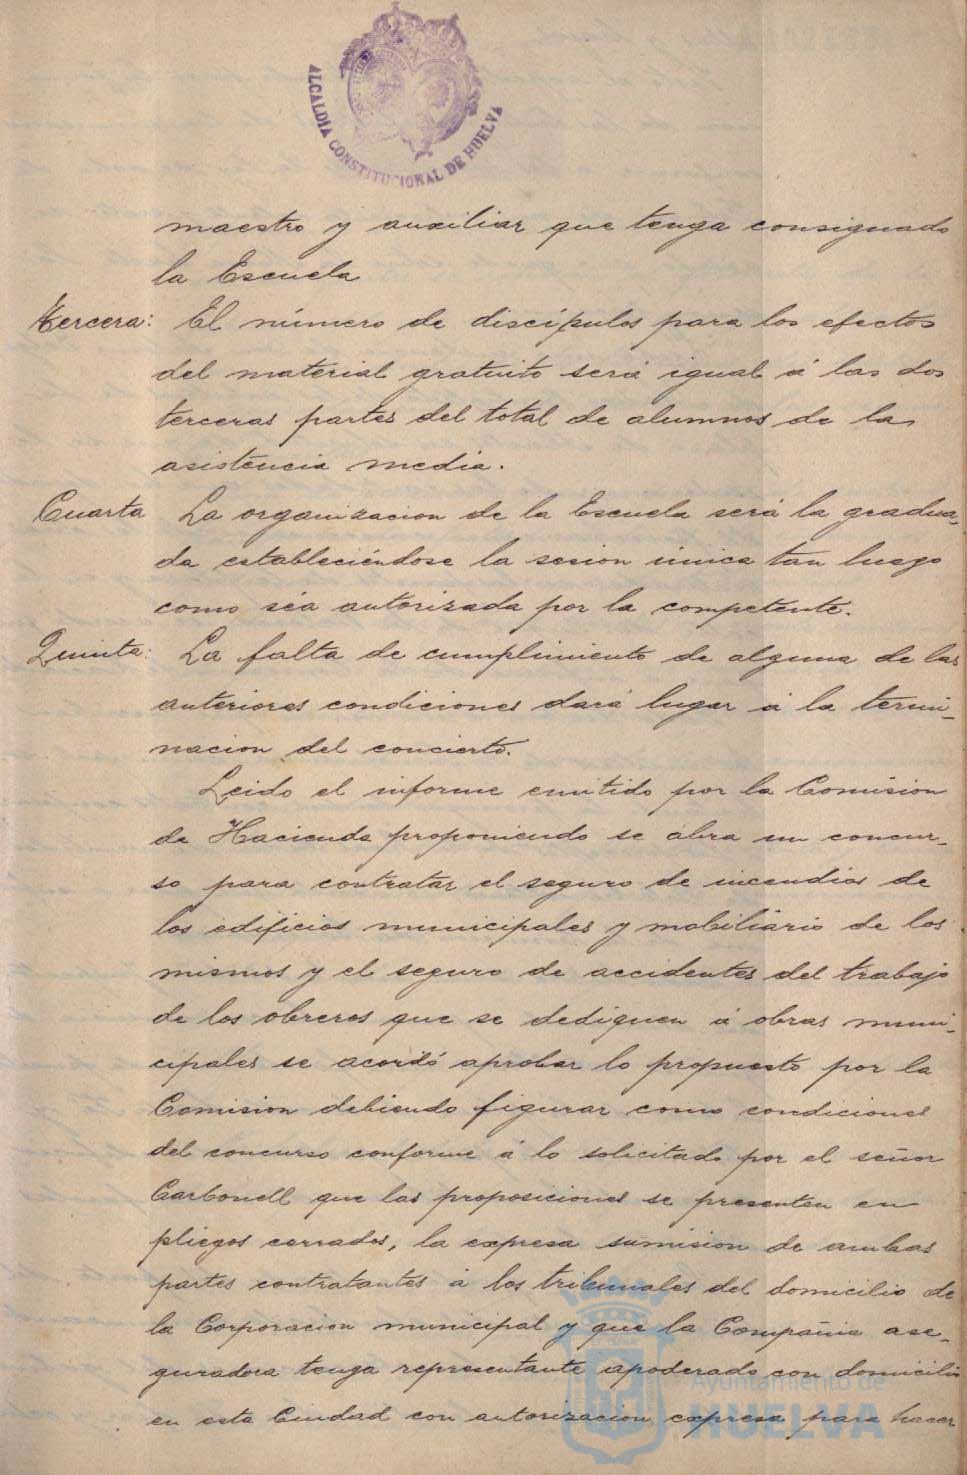 ALCALDIA CONSTITUCIONAL DE HUELVA
maestro y auxiliar que tenga consignado
la Escuela
Tercera: El número de discípulos para los efectos
del material gratuito será igual á las dos
terceras partes del total de alumnos de la
asistencia media.
Cuarta La organizacion de la Escuela será la gradua-
da estableciéndose la sesion única tan luego
como séa autorizada por la competente.
Quinta: La falta de cumplimiento de alguna de las
anteriores condiciones dará lugar á la termi-
nacion del concierto.
Leido el informe emitido por la Comision
de Hacienda proponiendo se abra un concur-
so para contratar el seguro de incendios de
los edificios municipales y mobiliario de los
mismos y el seguro de accidentes del trabajo
de los obreros que se dediquen á obras muni-
cipales se acordó aprobar lo propuesto por la
Comision debiendo figurar como condiciones
del concurso conforme á lo solicitado por el señor
Carbonell que las proposiciones se presenten en
pliegos cerrados, la expresa sumision de ambas
partes contratantes á los tribunales del domicilio de
la Corporacion municipal y que la Compañia ase-
guradora tenga representante apoderado con domicilio
en esta Ciudad con autorizacion expresa para hacer
Ayuntamiento de
HUELVA